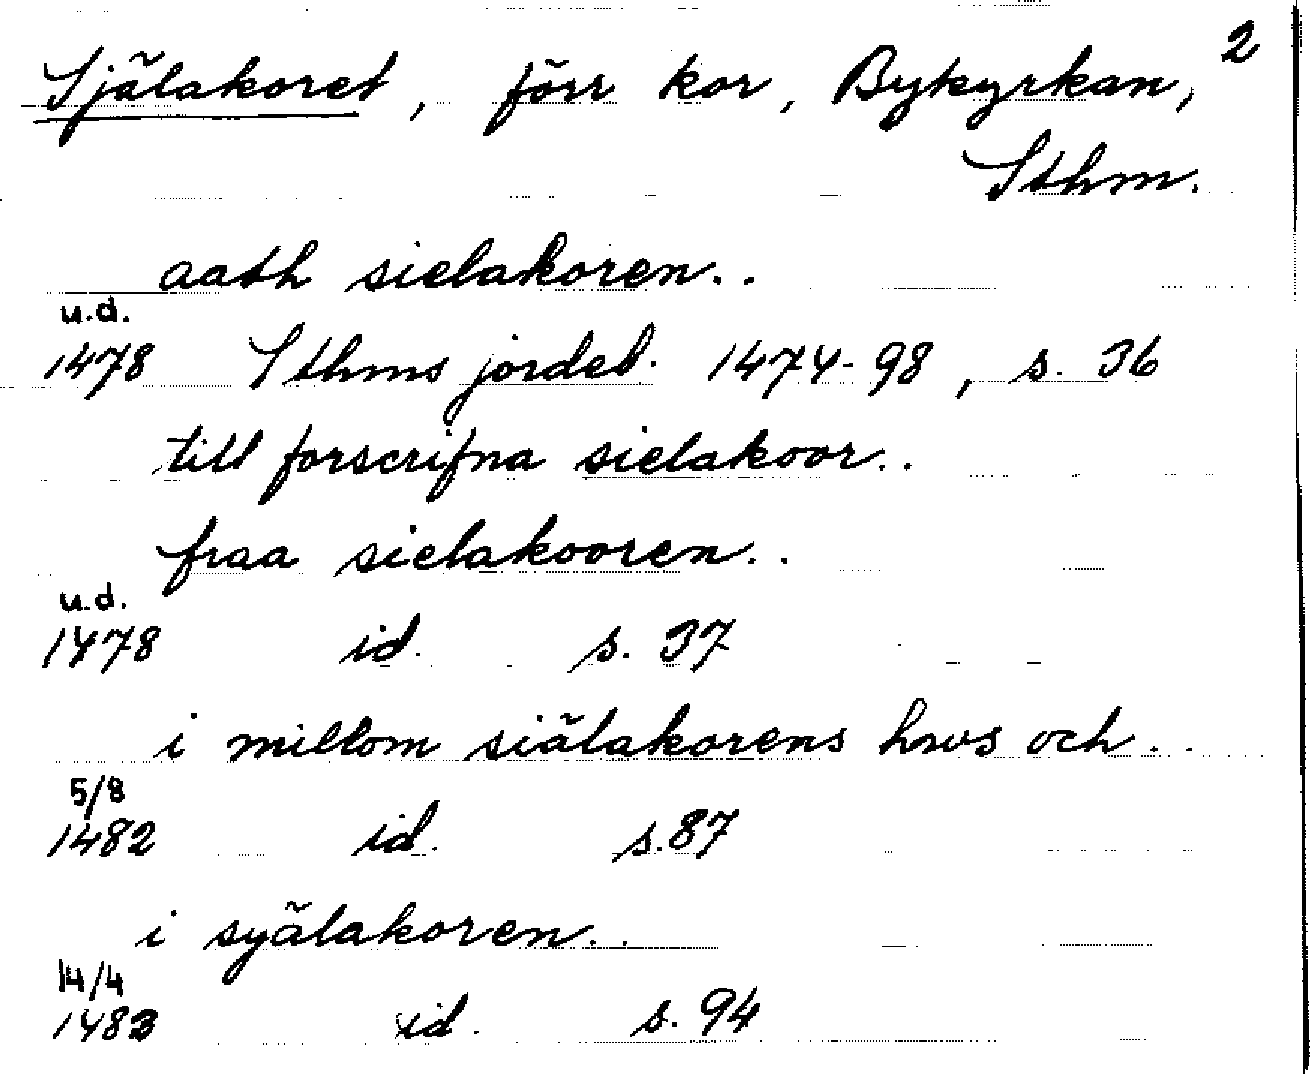 2
Själakoret, förr kor, Bykyrkan,
Sthm.
aath sielakoren..
u.d.
1478 Sthms jordeb. 1474-98, s. 36
till forscrifna sielakoor..
fraa sielakooren..
u.d.
1478 id. s. 37
i millom siälakorens hws och..
5/8
1482 id. s. 87
i syälakoren..
14/4
1483 id. s. 94